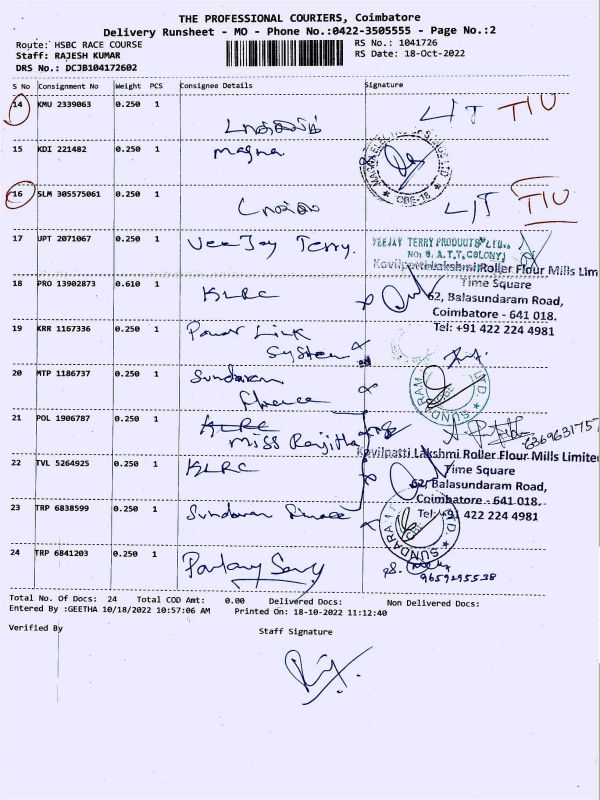 THE PROFESSIONAL COURIERS, Coimbatore
Delivery Runsheet - MO - Phone No.:0422-3505555 - Page No.:2
Route: HSBC RACE COURSE
Staff: RAJESH KUMAR
DRS No.: DCJB104172602
RS No.: 1041726
RS Date: 18-Oct-2022
S No Consignment No Weight PCS Consignee Details Signature
14 KMU 2339063 0.250 1
TIU
15 KDI 221482 0.250 1 Magna
16 SLM 305575061 0.250 1
TIU
17 UPT 2071067 0.250 1 Vee Jay Terry.
VEEJAY TERRY PRODUCTS LTD.,
NO: 9. A.T.T. COLONY,
Kovilpatti Lakshmi Roller Flour Mills Lim
18 PRO 13902873 0.610 1 KLRC
Time Square
62, Balasundaram Road,
Coimbatore - 641 018.
Tel: +91 422 224 4981
19 KRR 1167336 0.250 1 Power Link
System
20 MTP 1186737 0.250 1 Sundaram
Finance
21 POL 1906787 0.250 1 KLRC
Miss Ranjitha
6369631757
Kovilpatti Lakshmi Roller Flour Mills Limite
22 TVL 5264925 0.250 1 KLRC
Time Square
62, Balasundaram Road,
Coimbatore - 641 018.
Tel: +91 422 224 4981
23 TRP 6838599 0.250 1 Sundaram Finance
24 TRP 6841203 0.250 1
9659295538
Total No. Of Docs: 24 Total COD Amt: 0.00 Delivered Docs: Non Delivered Docs:
Entered By :GEETHA 10/18/2022 10:57:06 AM Printed On: 18-10-2022 11:12:40
Verified By Staff Signature